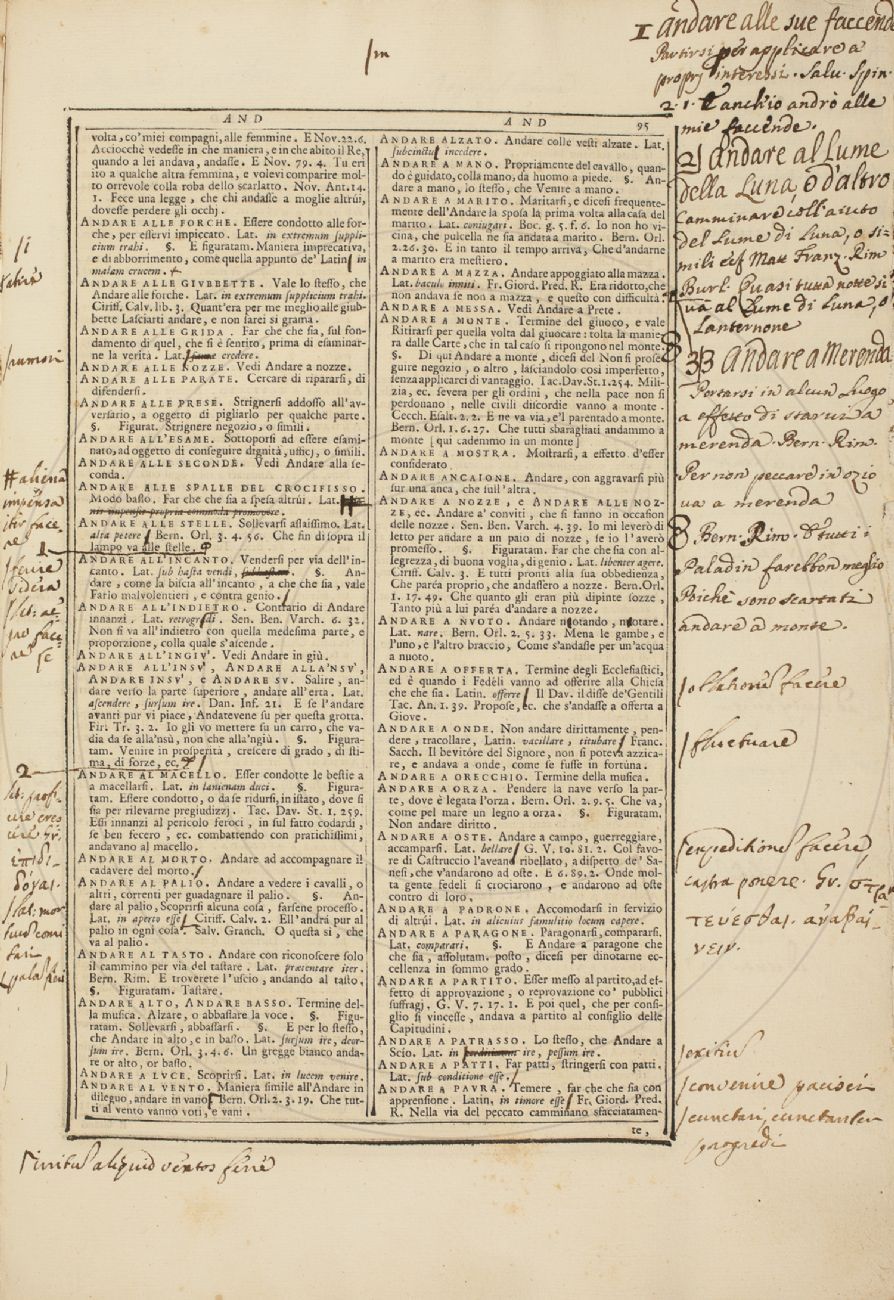 1 andare alle sue faccende
Partirsi per applicare a
proprj interessi. Salv. Spin.
2. 1. E anch'io andrò alle
mie faccende.
AND
AND 95
volta, co' miei compagni, alle femmine. E Nov. 22. 6.
Acciocchè vedesse in che maniera, e in che abito il Re,
quando a lei andava, andasse. E Nov. 79. 4. Tu eri
ito a qualche altra femmina, e volevi comparire mol-
to orrevole colla roba dello scarlatto. Nov. Ant. 14.
1. Fece una legge, che chi andasse a moglie altrúi,
dovesse perdere gli occhj.
ANDARE ALLE FORCHE. Essere condotto alle for-
che, per esservi impiccato. Lat. in extremum suppli-
cium trahi. §. E figuratam. Maniera imprecativa,
e di abborrimento, come quella appunto de' Latini in
malam crucem.
ANDARE ALLE GIVBBETTE. Vale lo stesso, che
Andare alle forche. Lat. in extremum supplicium trahi.
Ciriff. Calv. lib. 3. Quant'era per me meglio alle giub-
bette Lasciarti andare, e non farei sì grama.
ANDARE ALLE GRIDA. Far che che sia, sul fon-
damento di quel, che si è sentito, prima di esaminar-
ne la verità. Lat. credere.
ANDARE ALLE NOZZE. Vedi Andare a nozze.
ANDARE ALLE PARATE. Cercare di ripararsi, di
difendersi.
ANDARE ALLE PRESE. Strignersi addosso all'av-
versario, a oggetto di pigliarlo per qualche parte.
§. Figurat. Strignere negozio, o simili.
ANDARE ALL'ESAME. Sottoporsi ad essere esami-
nato, ad oggetto di conseguire dignità, ufficj, o simili.
ANDARE ALLE SECONDE. Vedi Andare alla se-
conda.
ANDARE ALLE SPALLE DEL CROCIFISSO.
Modo basso. Far che che sia a spesa altrúi. Lat.
nis impensis propria commoda promovere.
ANDARE ALLE STELLE. Sollevarsi assaissimo. Lat.
alta petere. Bern. Orl. 3. 4. 56. Che fin di sopra il
lampo va alle stelle.
ANDARE ALL'INCANTO. Vendersi per via dell'in-
canto. Lat. sub hasta vendi, §. An-
dare, come la biscia all'incanto, a che che sia, vale
Farlo malvolentieri, e contra genio.
ANDARE ALL'INDIETRO. Contrario di Andare
innanzi. Lat. retrogredi. Sen. Ben. Varch. 6. 32.
Non si va all'indietro con quella medesima parte, e
proporzione, colla quale s'ascende.
ANDARE ALL'INGIV. Vedi Andare in giù.
ANDARE ALL'INSV, ANDARE ALLA'NSV,
ANDARE INSV, E ANDARE SV. Salire, an-
dare verso la parte superiore, andare all'erta. Lat.
ascendere, sursum ire. Dan. Inf. 21. E se l'andare
avanti pur vi piace, Andatevene su per questa grotta.
Fir. Tr. 3. 2. Io gli vo mettere su un carro, che va-
dia da se alla'nsù, non che alla'ngiù. §. Figura-
tam. Venire in prosperità, crescere di grado, di sti-
ma, di forze, ec.
ANDARE AL MACELLO. Esser condotte le bestie a
a macellarsi. Lat. in lanienam duci. §. Figura-
tam. Essere condotto, o da se ridursi, in istato, dove si
sia per rilevarne pregiudizj. Tac. Dav. St. 1. 259.
Essi innanzi al pericolo feroci, in sul fatto codardi,
se ben fecero, ec. combattendo con pratichissimi,
andavano al macello.
ANDARE AL MORTO. Andare ad accompagnare il
cadavere del morto.
ANDARE AL PALIO. Andare a vedere i cavalli, o
altri, correnti per guadagnare il palio. §. An-
dare al palio, Scoprirsi alcuna cosa, farsene processo.
Lat. in aperto esse. Ciriff. Calv. 2. Ell'andrà pur al
palio in ogni cosa. Salv. Granch. O questa sì, che
va al palio.
ANDARE AL TASTO. Andare con riconoscere solo
il cammino per via del tastare. Lat. praetentare iter.
Bern. Rim. E troverete l'uscio, andando al tasto.
§. Figuratam. Tastare.
ANDARE ALTO, ANDARE BASSO. Termine del-
la musica. Alzare, o abbassare la voce. §. Figu-
ratam. Sollevarsi, abbassarsi. §. E per lo stesso,
che Andare in alto, e in basso. Lat. sursum ire, deor-
sum ire. Bern. Orl. 3. 4. 6. Un gregge bianco anda-
re or alto, or basso.
ANDARE A LVCE. Scoprirsi. Lat. in lucem venire.
ANDARE AL VENTO. Maniera simile all'Andare in
dileguo, andare in vano. Bern. Orl. 2. 3. 19. Che tut-
ti al vento vanno voti, e vani.
ANDARE ALZATO. Andare colle vesti alzate. Lat.
subcinctus incedere.
ANDARE A MANO. Propriamente del cavallo, quan-
do è guidato, colla mano, da huomo a piede. §. An-
dare a mano, lo stesso, che Venire a mano.
ANDARE A MARITO. Maritarsi, e dicesi frequente-
mente dell'Andare la sposa la prima volta alla casa del
marito. Lat. coniugari. Boc. g. 5. f. 6. Io non ho vi-
cina, che pulcella ne sia andata a marito. Bern. Orl.
2. 26. 30. E in tanto il tempo arriva, Che d'andarne
a marito era mestiero.
ANDARE A MAZZA. Andare appoggiato alla mazza.
Lat. baculo inniti. Fr. Giord. Pred. R. Era ridotto, che
non andava se non a mazza, e questo con difficultà.
ANDARE A MESSA. Vedi Andare a Prete.
ANDARE A MONTE. Termine del giuoco, e vale
Ritirarsi per quella volta dal giuocare: tolta la manie-
ra dalle Carte, che in tal caso si ripongono nel monte.
§. Di qui Andare a monte, dicesi del Non si prose-
guire negozio, o altro, lasciandolo così imperfetto,
senza applicarci di vantaggio. Tac. Dav. St. 1. 254. Mili-
zia, ec. severa per gli ordini, che nella pace non si
perdonano, nelle civili discordie vanno a monte.
Cecch. Esalt. 2. 2. E ne va via, e'l parentado a monte.
Bern. Orl. 1. 6. 27. Che tutti sbaragliati andammo a
monte [qui cademmo in un monte]
ANDARE A MOSTRA. Mostrarsi, a effetto d'esser
considerato.
ANDARE ANCAIONE. Andare, con aggravarsi più
sur una anca, che sull'altra.
ANDARE A NOZZE, e ANDARE ALLE NOZ-
ZE, ec. Andare a' conviti, che si fanno in occasion
delle nozze. Sen. Ben. Varch. 4. 39. Io mi leverò di
letto per andare a un paio di nozze, se io l'averò
promesso. §. Figuratam. Far che che sia con al-
legrezza, di buona voglia, di genio. Lat. libenter agere.
Ciriff. Calv. 3. E tutti pronti alla sua obbedienza,
Che paréa proprio, che andassero a nozze. Bern. Orl.
1. 17. 49. Che quanto gli eran più dipinte sozze,
Tanto più a lui paréa d'andare a nozze.
ANDARE A NVOTO. Andare notando, notare.
Lat. nare. Bern. Orl. 2. 5. 33. Mena le gambe, e
l'uno, e l'altro braccio, Come s'andasse per un'acqua
a nuoto.
ANDARE A OFFERTA. Termine degli Ecclesiastici,
ed è quando i Fedéli vanno ad offerire alla Chiesa
che che sia. Latin. offerre. Il Dav. il disse de' Gentili
Tac. An. 1. 39. Propose, ec. che s'andasse a offerta a
Giove.
ANDARE A ONDE. Non andare dirittamente, pen-
dere, tracollare, Latin. vacillare, titubare. Franc.
Sacch. Il bevitóre del Signore, non si potéva azzica-
re, e andava a onde, come se fusse in fortúna.
ANDARE A ORECCHIO. Termine della musica.
ANDARE A ORZA. Pendere la nave verso la par-
te, dove è legata l'orza. Bern. Orl. 2. 9. 5. Che va,
come pel mare un legno a orza. §. Figuratam.
Non andare diritto.
ANDARE A OSTE. Andare a campo, guerreggiare,
accamparsi. Lat. bellare. G. V. 10. 81. 2. Col favo-
re di Castruccio l'aveano ribellato, a dispetto de' Sa-
nesi, che v'andarono ad oste. E 6. 89. 2. Onde mol-
ta gente fedeli si crociarono, e andarono ad oste
contro di loro.
ANDARE A PADRONE. Accomodarsi in servizio
di altrúi. Lat. in alicuius famulitio locum capere.
ANDARE A PARAGONE. Paragonarsi, compararsi.
Lat. comparari. §. E Andare a paragone che
che sia, assolutam. posto, dicesi per dinotarne ec-
cellenza in sommo grado.
ANDARE A PARTITO. Esser messo al partito, ad ef-
fetto di approvazione, o reprovazione co' pubblici
suffragj. G. V. 7. 17. 1. E poi quel, che per consi-
glio si vincesse, andava a partito al consiglio delle
Capitudini.
ANDARE A PATRASSO. Lo stesso, che Andare a
Scio. Lat. in ire, pessum ire.
ANDARE A PATTI. Far patti, stringersi con patti.
Lat. sub conditione esse.
ANDARE A PAVRA. Temere, far che che sia con
apprensione. Latin. in timore esse. Fr. Giord. Pred.
R. Nella via del peccato camminano sfacciatamen-
te,
2 andare al Lume
della Luna, o d'altro
Camminare coll'aiuto
del Lume di Luna, o si-
mili Matt. Franz. Rim.
Burl. Quasi tutta notte si
va al Lume di Luna, o
Lanternone
3 Andare a Merenda
Portarsi in alcun Luogo
a effetto di starvi a
merenda. Bern. Rim.
Per non peccare in ozio
va a merenda
Bern. Rim. E tutti i
Paladin farebbon meglio
Poichè sono scartati
andare a monte.
oblationes facere
fluctuare
expeditionem facere
castra ponere. Gr. στρα
τεύεσθαι. ἀναβαί-
νειν.
exitium
convenire pacisci
cunctari, cunctanter
progredi
rumori
aliena
impensa
iter face-
re
1
ferire
sidera
2
ἐπιδι-
δόναι.
irritus aliquid ventos ferre